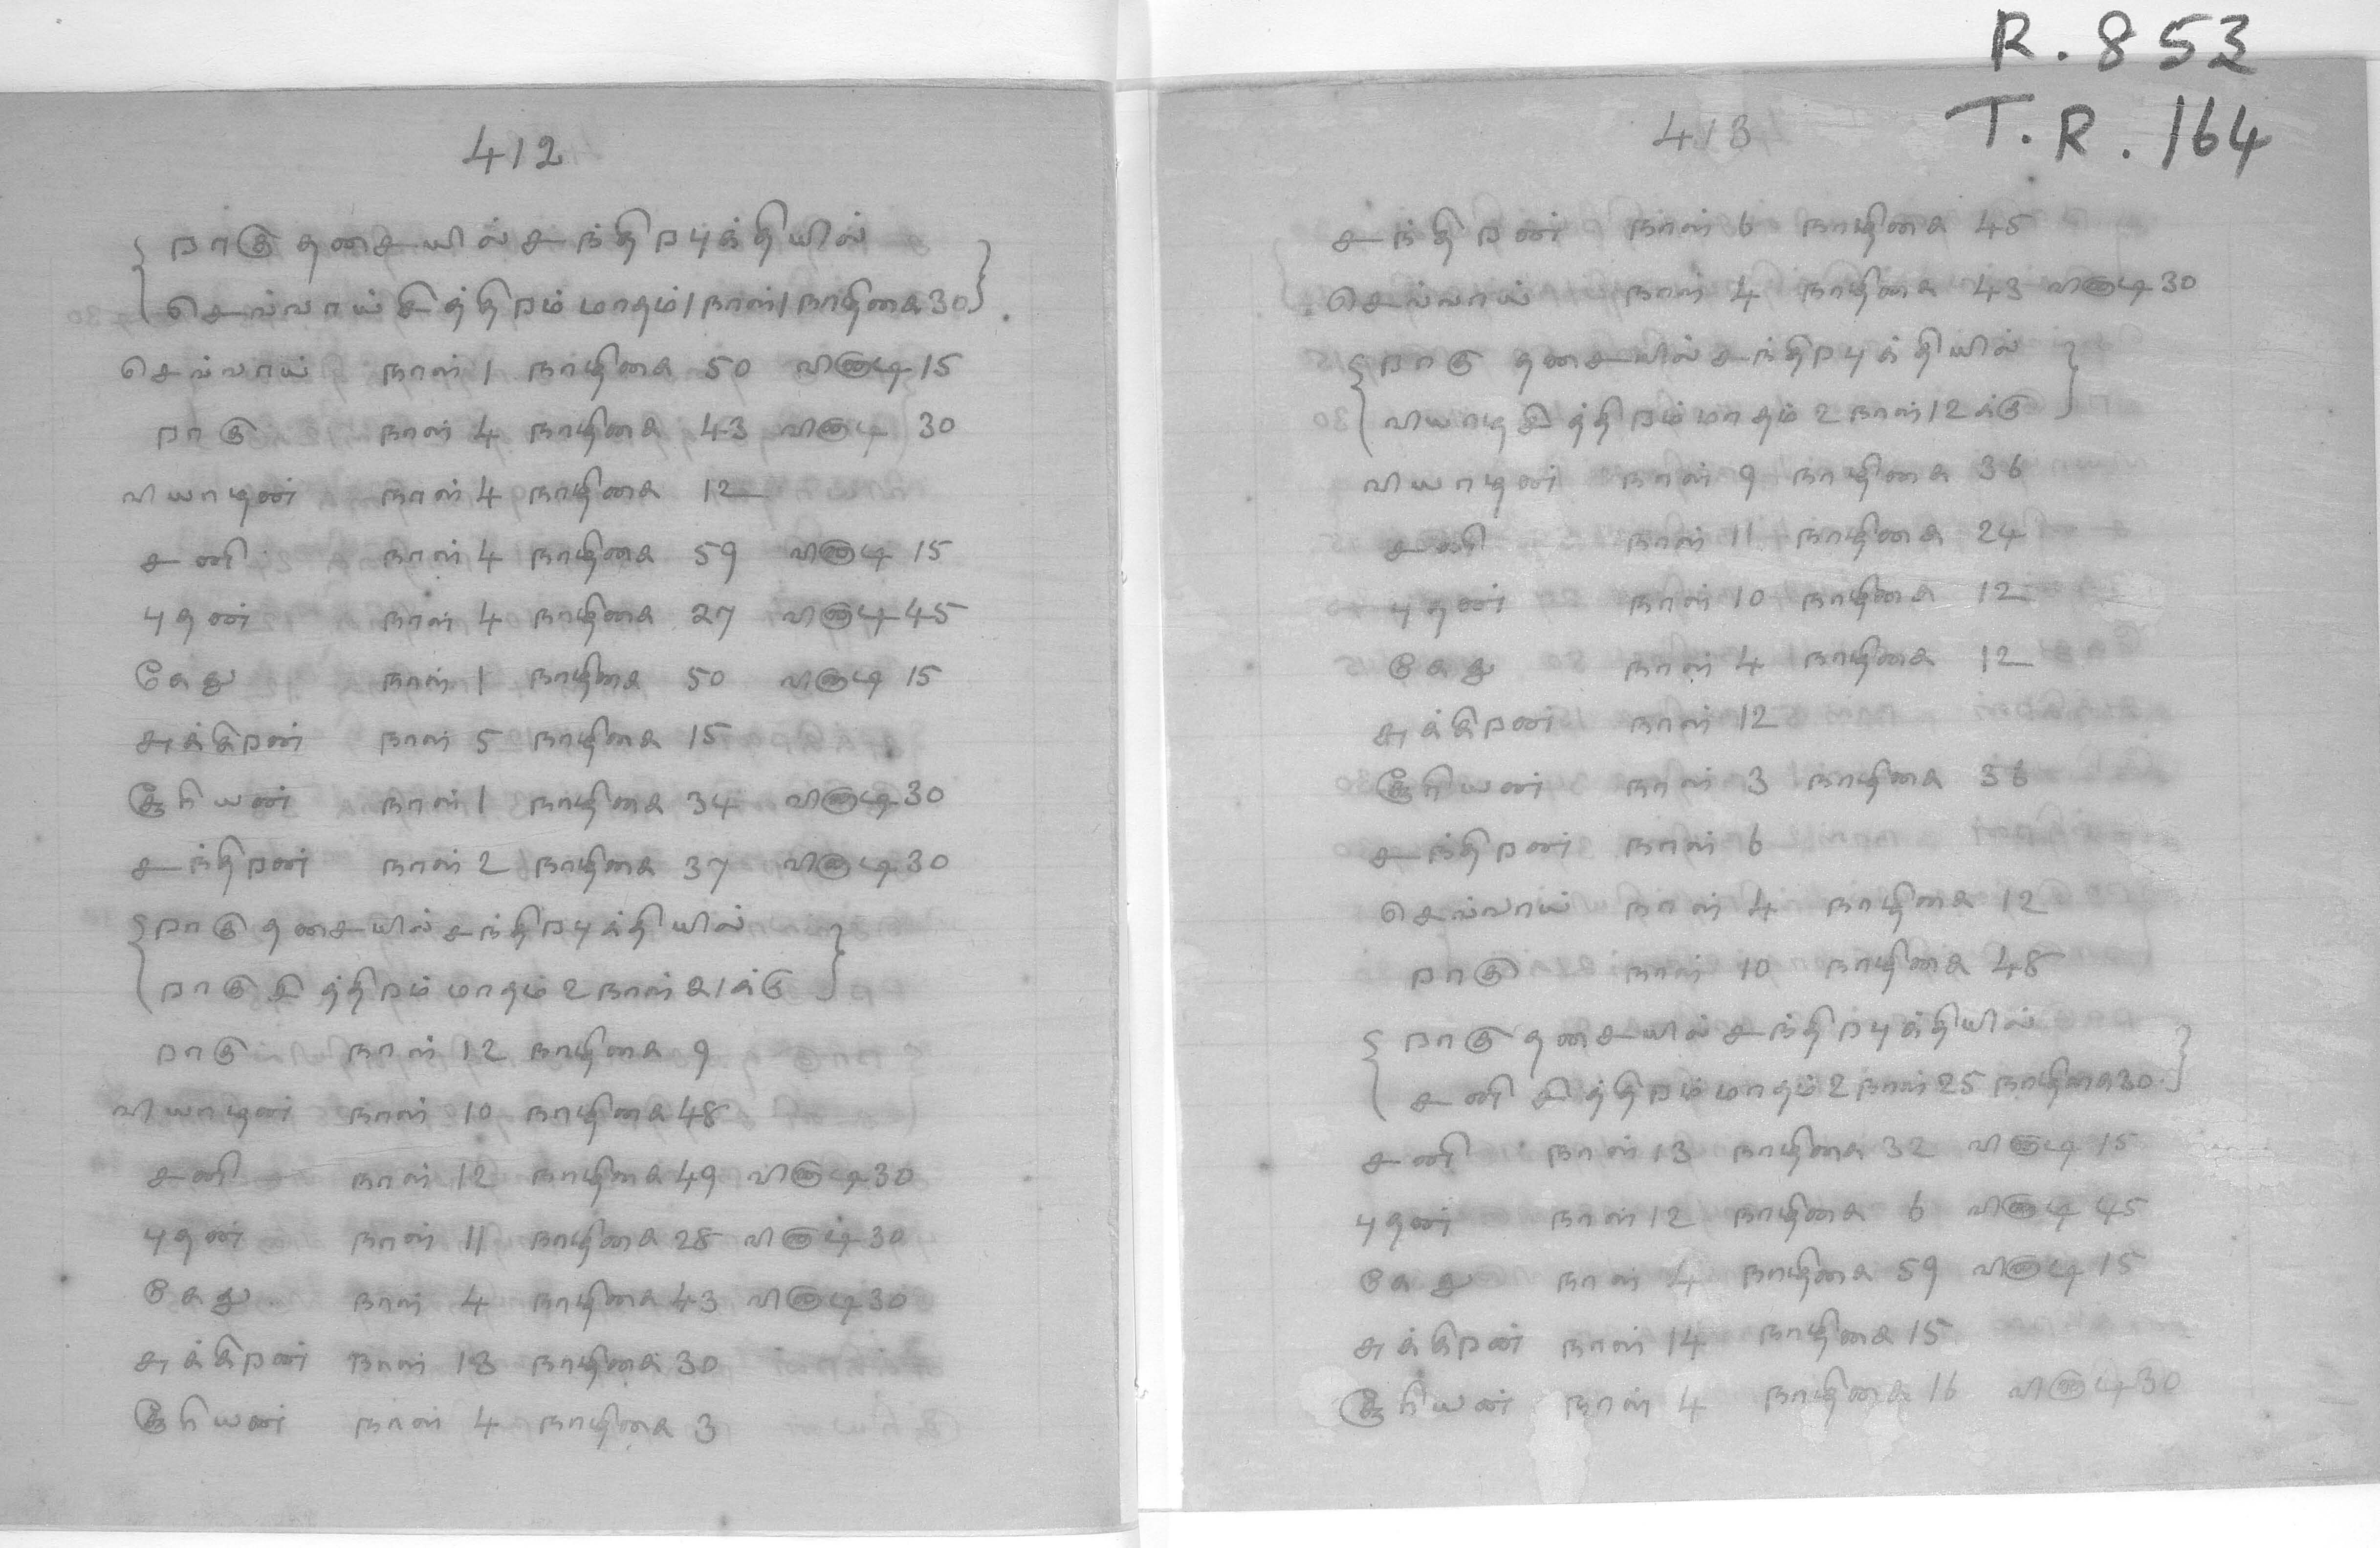 R. 853
T. R. 164
412
றாகு தசையில் சந்திறபுக்தியில்
செவ்வாய் சித்திறம் மாதம் 1 நாள் 1 நாழிகை 30
செவ்வாய் நாள் 1 நாழிகை 50 விநாடி 15
றாகு நாள் 4 நாழிகை 43 விநாடி 30
வியாழன் நாள் 4 நாழிகை 12
சனி நாள் 4 நாழிகை 59 விநாடி 15
புதன் நாள் 4 நாழிகை 27 விநாடி 45
கேது நாள் 1 நாழிகை 50 விநாடி 15
சுக்கிறன் நாள் 5 நாழிகை 15
சூரியன் நாள் 1 நாழிகை 34 விநாடி 30
சந்திறன் நாள் 2 நாழிகை 37 விநாடி 30
றாகு தசையில் சந்திறபுக்தியில்
றாகு சித்திறம் மாதம் 2 நாள் க1க்கு
றாகு நாள் 12 நாழிகை 9
வியாழன் நாள் 10 நாழிகை 48
சனி நாள் 12 நாழிகை 49 விநாடி 30
புதன் நாள் 11 நாழிகை 28 விநாடி 30
கேது நாள் 4 நாழிகை 43 விநாடி 30
சுக்கிறன் நாள் 13 நாழிகை 30
சூரியன் நாள் 4 நாழிகை 3
413
சந்திறன் நாள் 6 நாழிகை 45
செவ்வாய் நாள் 4 நாழிகை 43 விநாடி 30
றாகு தசையில் சந்திறபுக்தியில்
வியாழ சித்திறம் மாதம் 2 நாள் 12க்கு
வியாழன் நாள் 9 நாழிகை 36
சனி நாள் 11 நாழிகை 24
புதன் நாள் 10 நாழிகை 12
கேது நாள் 4 நாழிகை 12
சுக்கிறன் நாள் 12
சூரியன் நாள் 3 நாழிகை 36
சந்திறன் நாள் 6
செவ்வாய் நாள் 4 நாழிகை 12
றாகு நாள் 10 நாழிகை 48
றாகு தசையில் சந்திறபுக்தியில்
சனி சித்திறம் மாதம் 2 நாள் 25 நாழிகை 30
சனி நாள் 13 நாழிகை 32 விநாடி 15
புதன் நாள் 12 நாழிகை 6 விநாடி 45
கேது நாள் 4 நாழிகை 59 விநாடி 15
சுக்கிறன் நாள் 14 நாழிகை 15
சூரியன் நாள் 4 நாழிகை 16 விநாடி 30